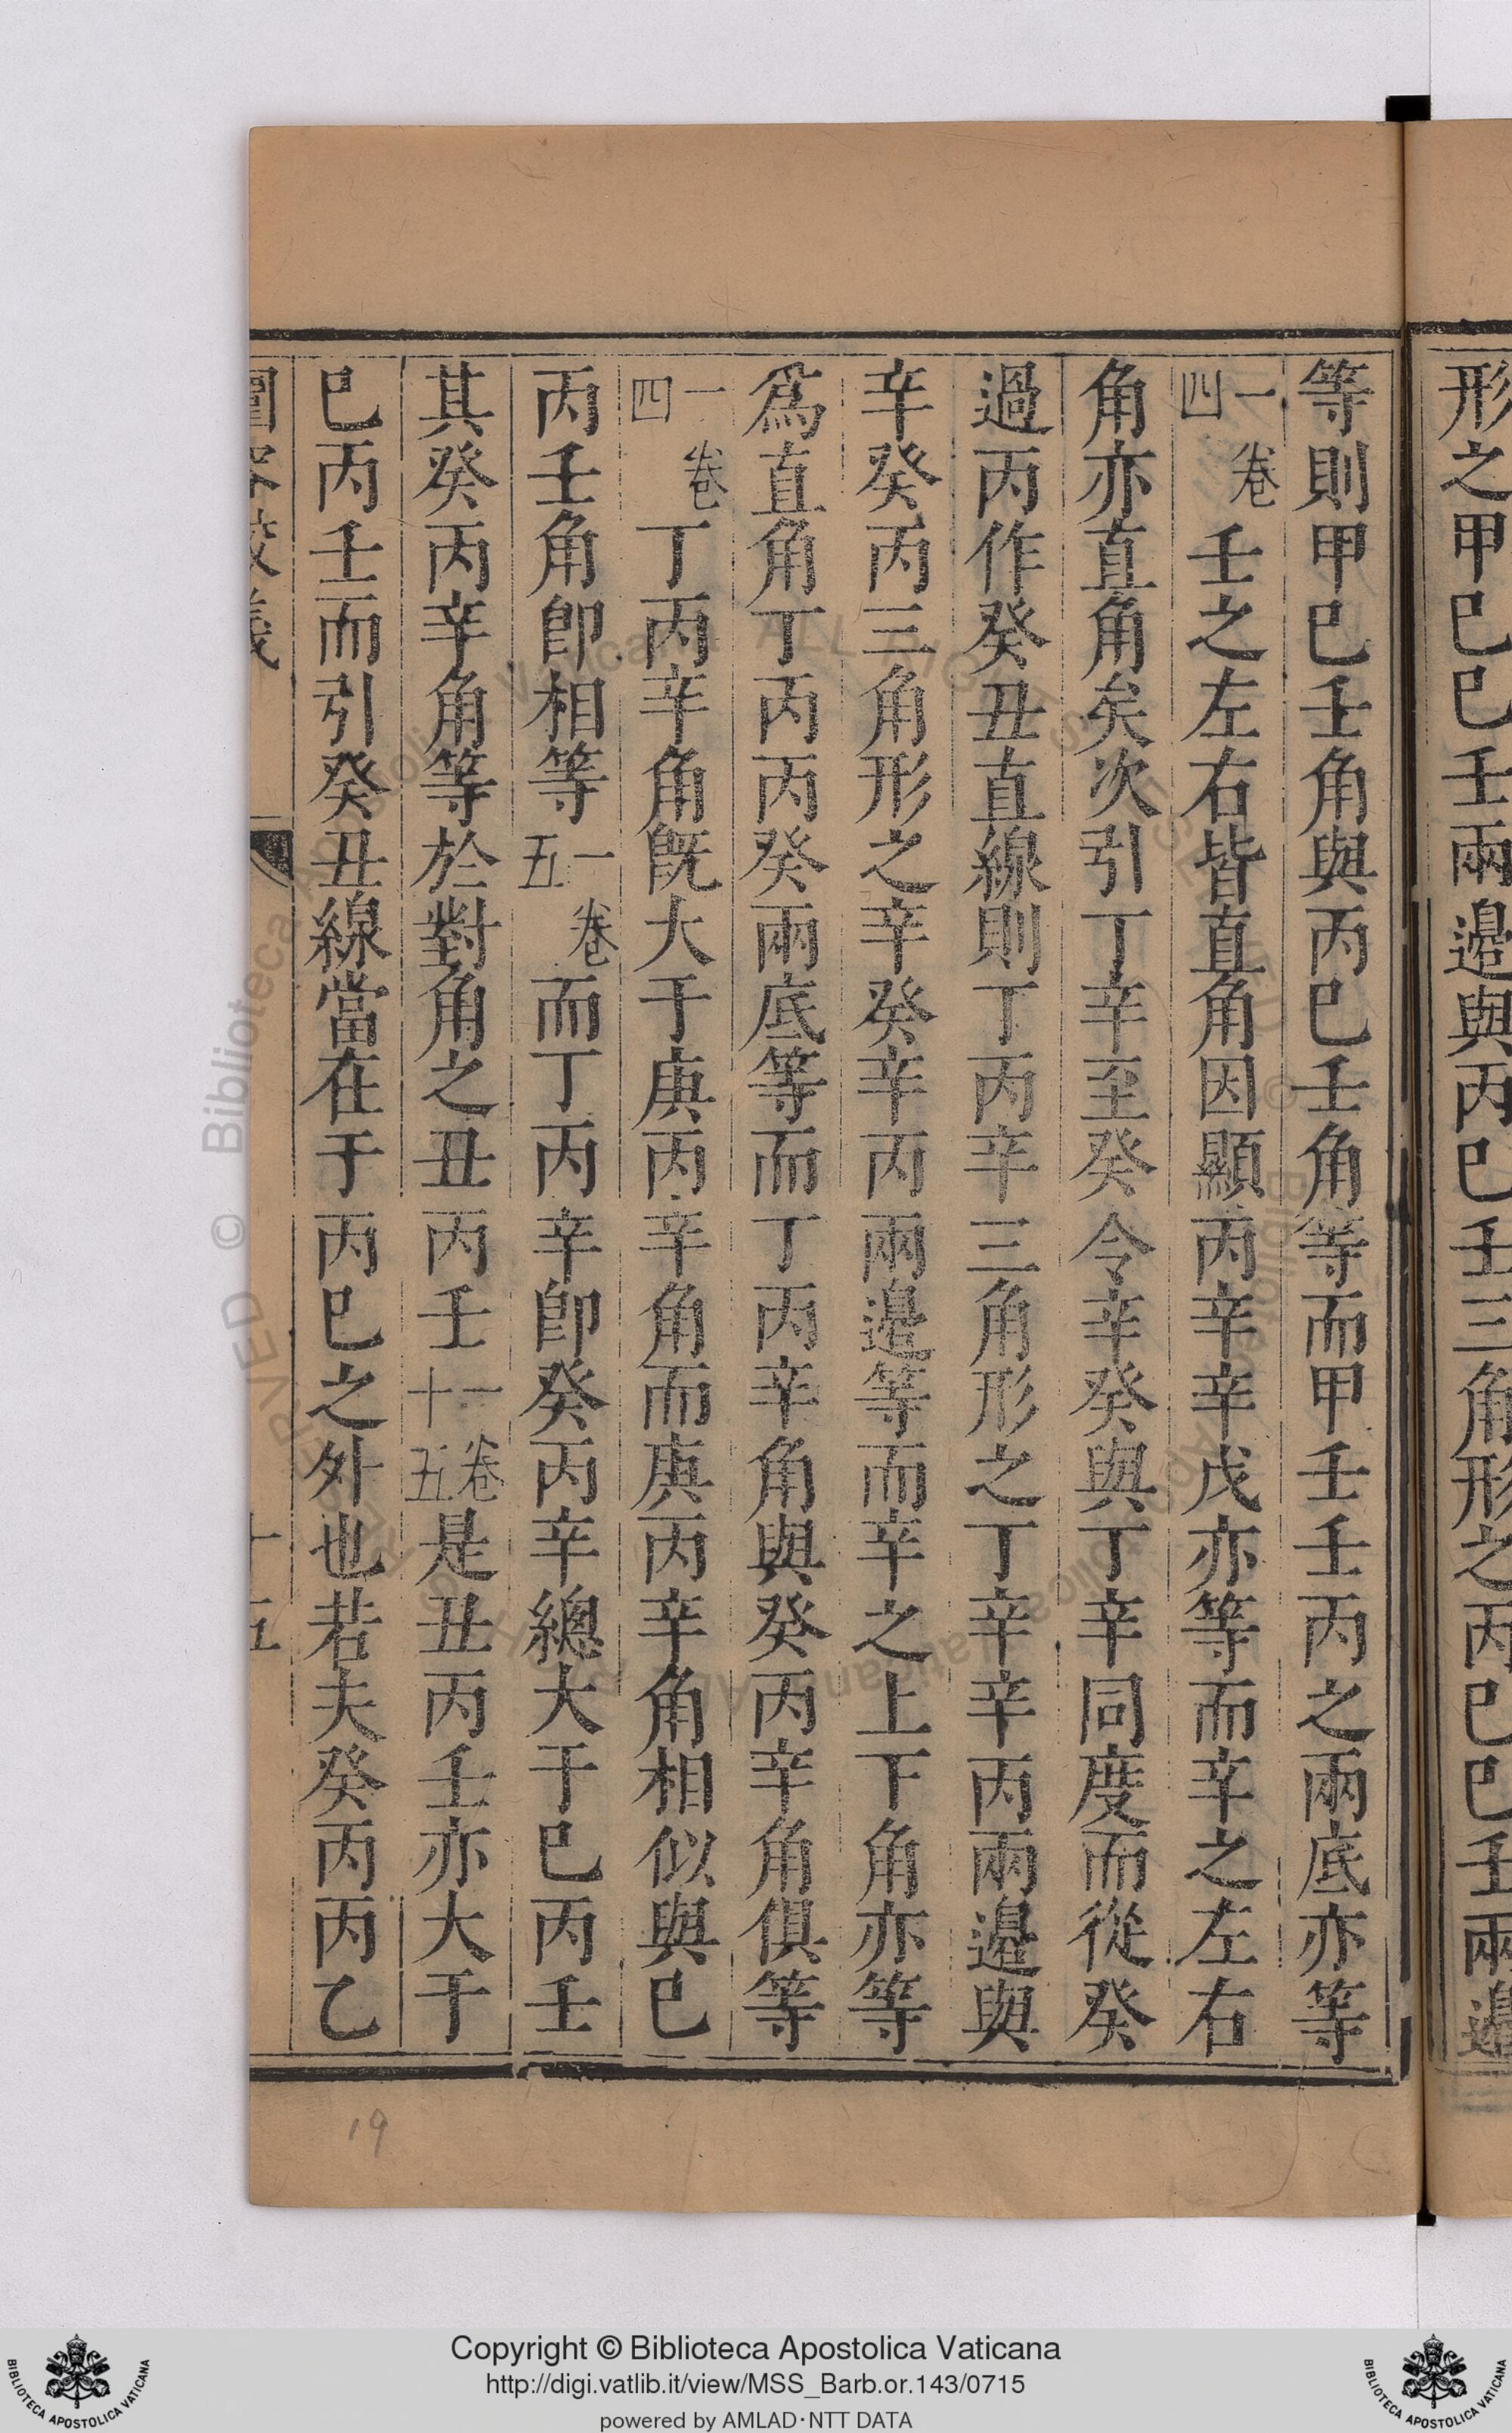 形之甲巳巳壬兩邊與丙巳壬三角形之丙巳巳壬兩邊
等則甲巳壬角與丙巳壬角等而甲壬壬丙之兩底亦等
一卷四壬之左右皆直角因顯丙辛辛戊亦等而辛之左右
角亦直角矣次引丁辛至癸令辛癸與丁辛同度而從癸
過丙作癸丑直線則丁丙辛三角形之丁辛辛丙兩邊與
辛癸丙三角形之辛癸辛丙兩邊等而辛之上下角亦等
爲直角丁丙丙癸兩底等而丁丙辛角與癸丙辛角俱等
一卷四丁丙辛角既大于庚丙辛角而庚丙辛角相似與巳
丙壬角卽相等一卷五而丁丙辛卽癸丙辛總大于巳丙壬
其癸丙辛角等於對角之丑丙壬一卷十五是丑丙壬亦大于
巳丙壬而引癸丑線當在于丙巳之外也若夫癸丙丙乙
圜容較義
十五
19
© Biblioteca Apostolica Vaticana
Copyright © Biblioteca Apostolica Vaticana
http://digi.vatlib.it/view/MSS_Barb.or.143/0715
powered by AMLAD·NTT DATA
BIBLIOTECA APOSTOLICA VATICANA
BIBLIOTECA APOSTOLICA VATICANA